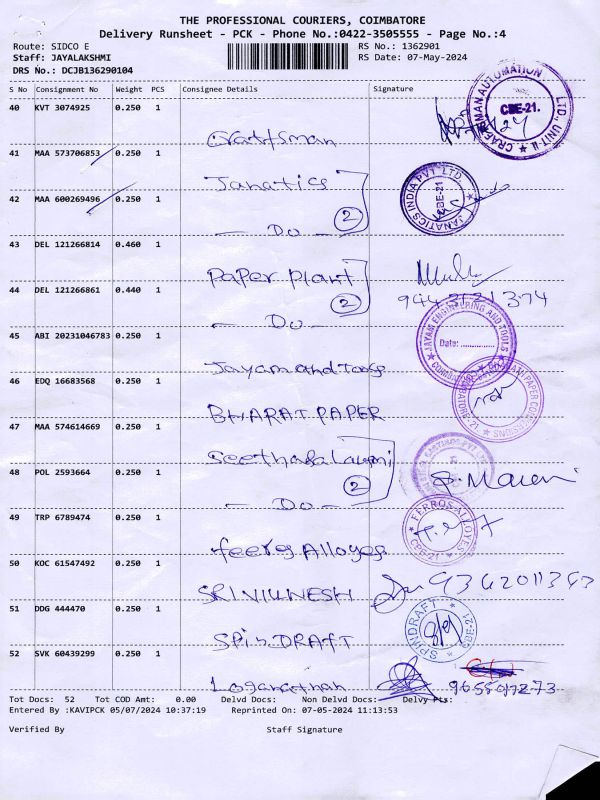 THE PROFESSIONAL COURIERS, COIMBATORE
Delivery Runsheet - PCK - Phone No.:0422-3505555 - Page No.:4
Route: SIDCO E
RS No.: 1362901
Staff: JAYALAKSHMI
RS Date: 07-May-2024
DRS No.: DCJB136290104
S No Consignment No Weight PCS Consignee Details Signature
40 KVT 3074925 0.250 1
Craftsman
CRAFTSMAN AUTOMATION LTD., UNIT-II
CBE-21.
41 MAA 573706853 0.250 1
Janatics
42 MAA 600269496 0.250 1
2
JANATICS INDIA PVT. LTD.
CBE-21
Do
43 DEL 121266814 0.460 1
Paper plant
44 DEL 121266861 0.440 1
2
9443121374
Do
45 ABI 20231046783 0.250 1
JAYAM ENGINEERING AND TOOLS
Date:
Jayam and Tools
46 EDQ 16683568 0.250 1
BHARAT PAPER
47 MAA 574614669 0.250 1
Seethalalaxmi
48 POL 2593664 0.250 1
2
Do
49 TRP 6789474 0.250 1
FERROS ALLOYES
CBE-21
Feeros Alloyes
50 KOC 61547492 0.250 1
SRIVIGNESH
51 DDG 444470 0.250 1
SPINDRAFT
CBE-21
SPinDRAFT
52 SVK 60439299 0.250 1
Loganathan
Tot Docs: 52 Tot COD Amt: 0.00 Delvd Docs: Non Delvd Docs: Delvy Pts:
Entered By :KAVIPCK 05/07/2024 10:37:19 Reprinted On: 07-05-2024 11:13:53
Verified By Staff Signature